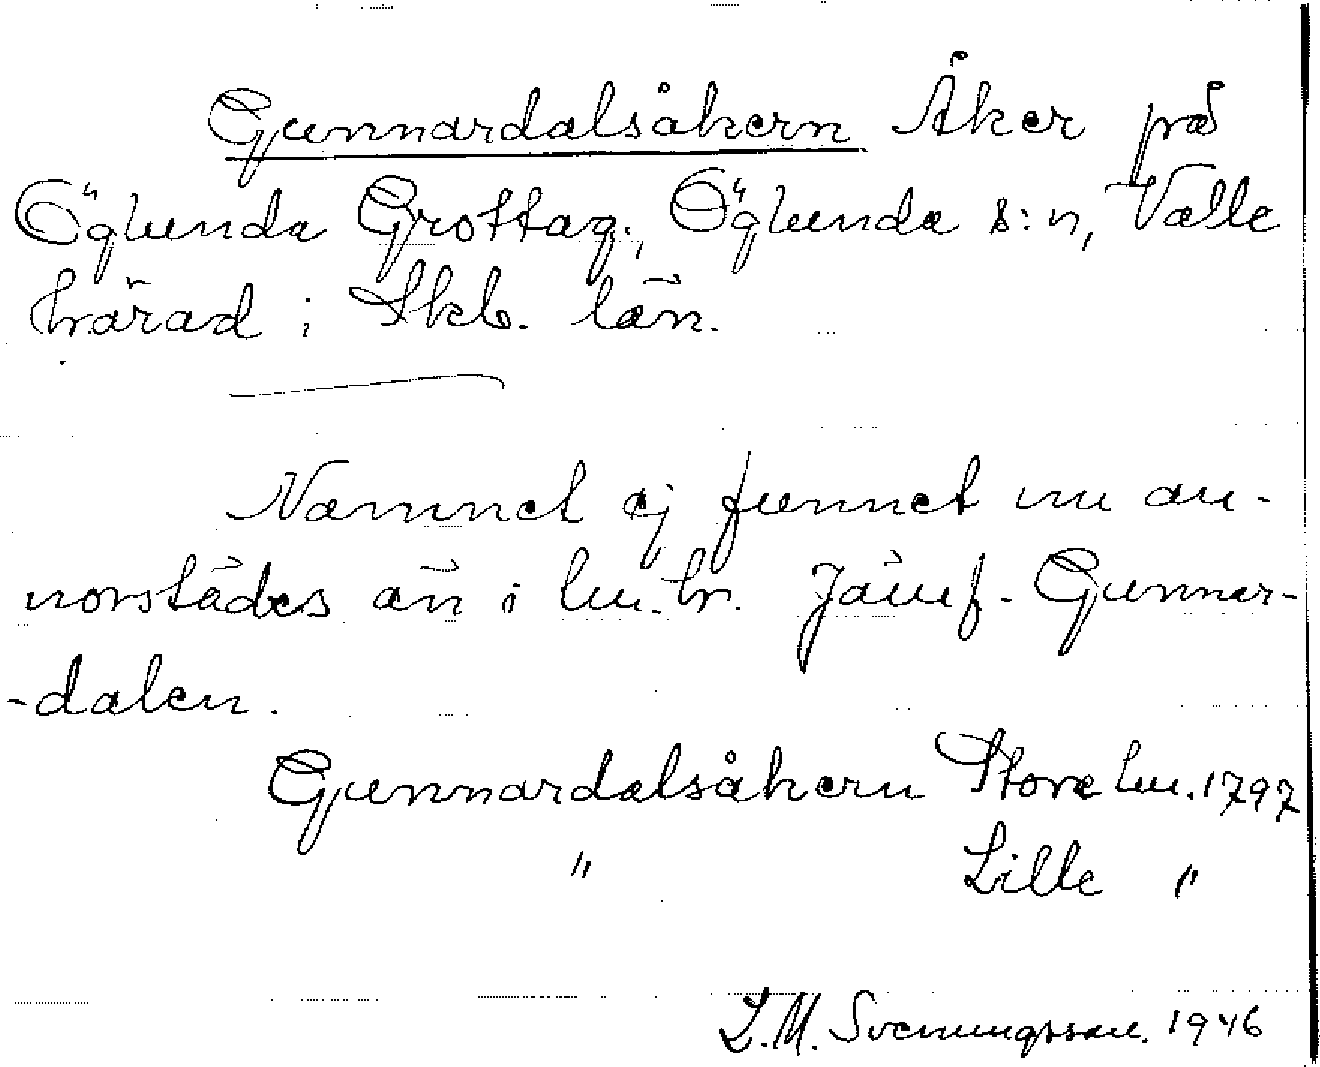 Gunnardalsåkern Åker på
Öglunda Grottag., Öglunda s:n, Valle
härad i Skb. län.
Namnet ej funnet nu an-
norstädes än i lm.hr. Jämf. Gunnar-
-dalen.
Gunnardalsåkern Store lm. 1797
" Lille "
L.M. Svenungsson. 1946